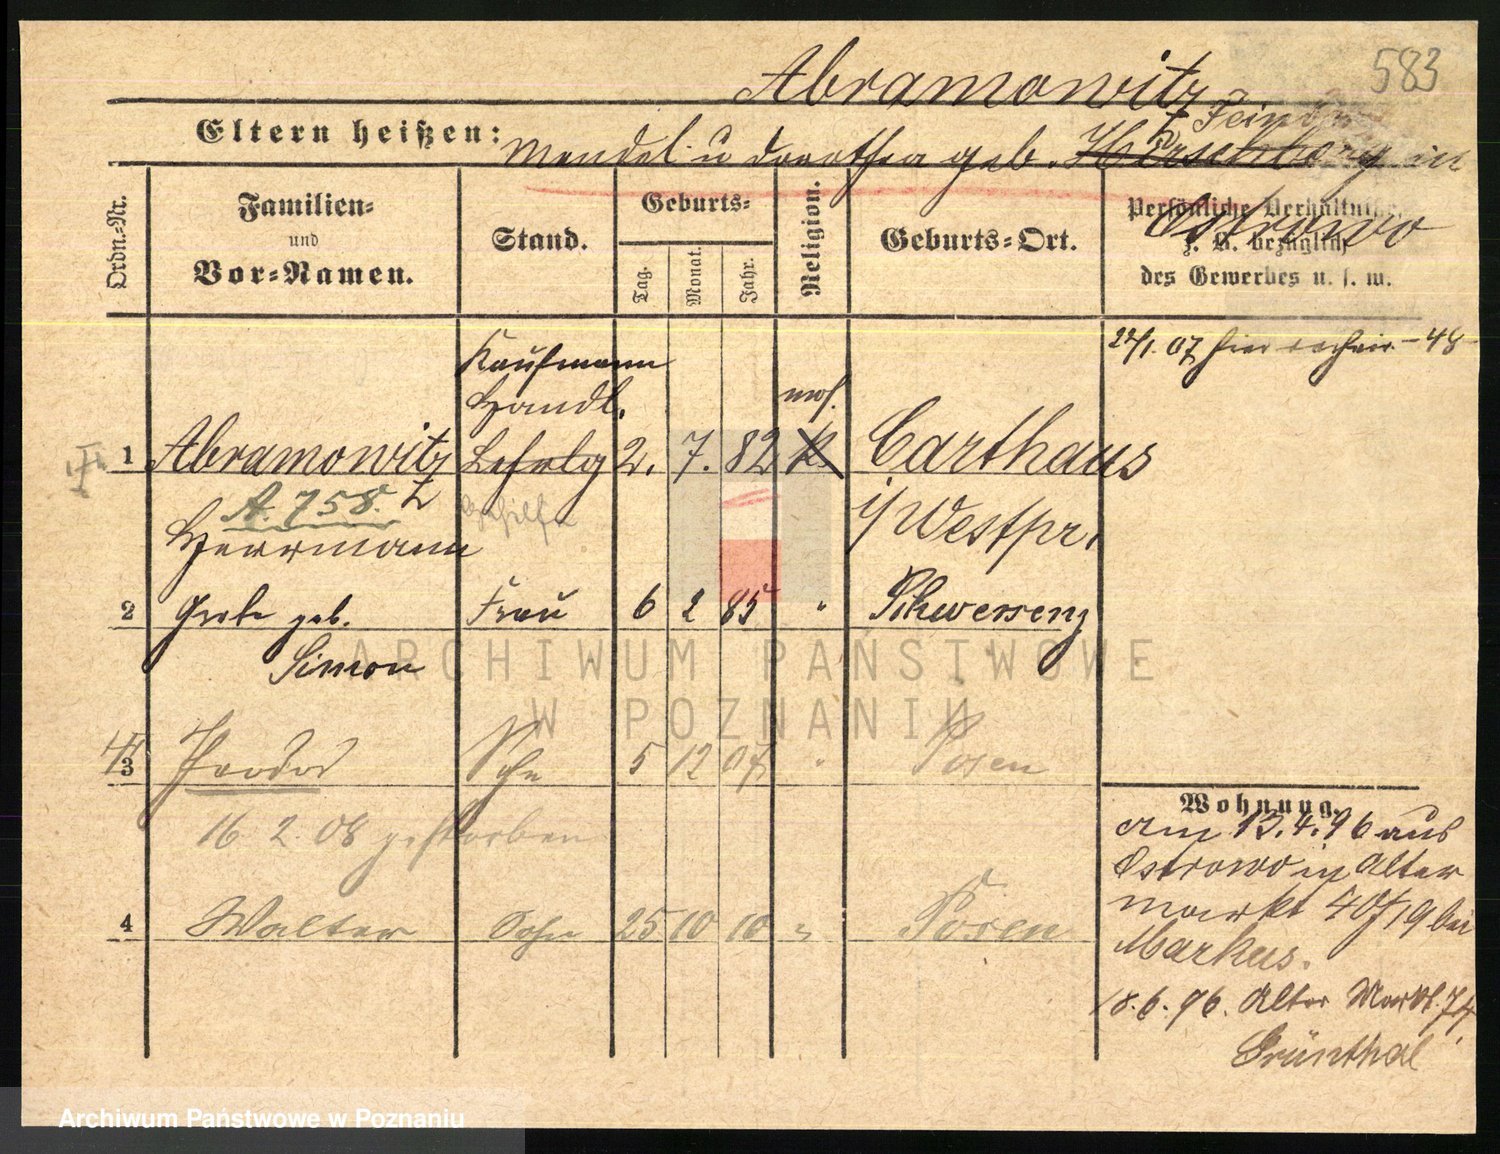 583
Abramowitz
Eltern heißen: Mendel u Dorothea geb. Hirschberg in
Ostrowo
Ordn.-Nr.
Familien-
und
Vor-Namen.
Stand.
Geburts-
Tag.
Monat.
Jahr.
Religion.
Geburts-Ort.
Persönliche Verhältnisse,
z. B. bezüglich
des Gewerbes u. s. w.
22/1. 07 hier
Kaufmann
Handl. mos.
1 Abramowitz Lehrlg 2. 7. 82 Carthaus
A. 758. Gehilfe i/ Westpr.
Herrmann
2 geb. Frau 6 2 85 " Schwersenz
Simon
3 Sohn 5 12 07 " Posen
16 2. 08 gestorben
4 Walter Sohn 25 10 10 " Posen
Wohnung.
am 13.4.96 aus
Ostrowo in Alter
markt 40/19 bei
Markus.
18.6.96. Alter Markt. 74
Grünthal
ARCHIWUM PAŃSTWOWE
W POZNANIU
Archiwum Państwowe w Poznaniu